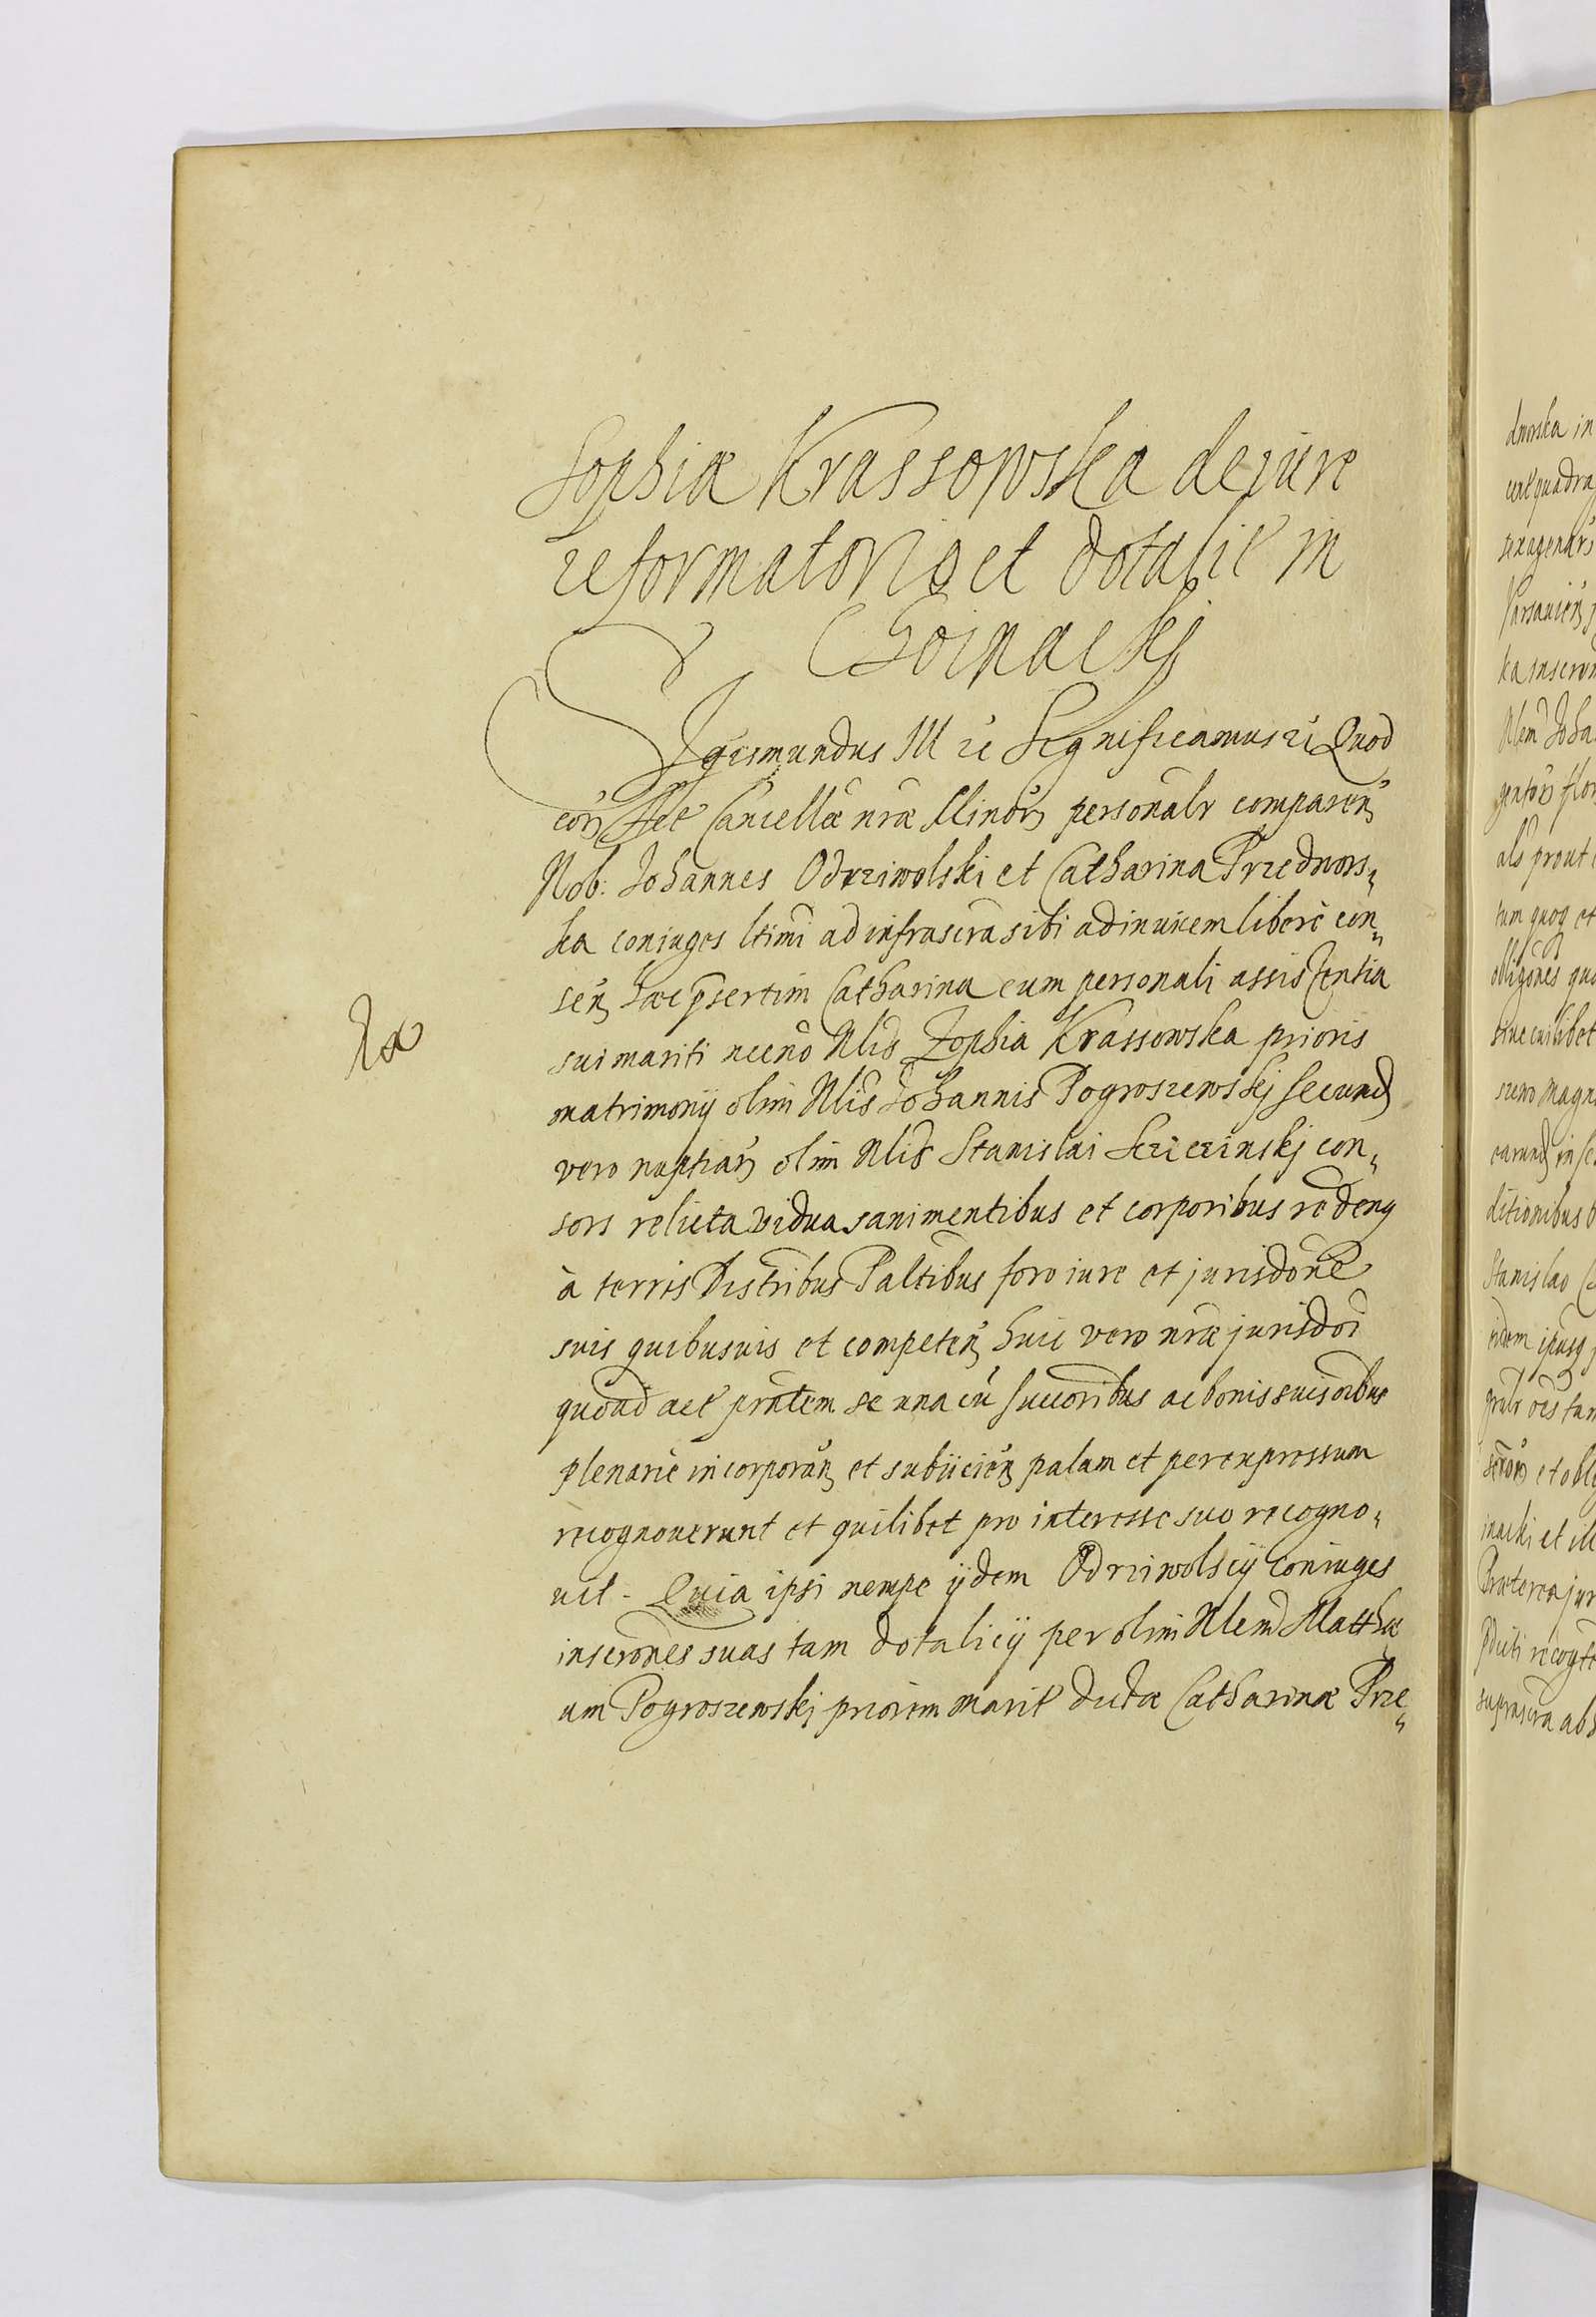 Sophiæ Krassowska de iure
reformatorio et dotalit in
Choinaskj
Sigismundus III zc Significamus zc Quod
corā Act Cancellæ nræ Minor personalr comparen
Nob: Johannes Odrziwolski et Catharina Przedwors„
ka coniuges ltimi ad infrascra sibi adinuicem liberè con„
sen hæc psertim Catharina cum personali assistentia
Rx
sui mariti necno Nlis Zophia Krassowska prioris
matrimonij olim Nlis Johannis Pogroszewskj secund
vero nuptiar olim Nlis Stanislai Szczczinskj con„
sors relicta vidua sani mentibus et corporibus reden
à terris Distribus Paltibus foro iure et jurisdone
suis quibusuis et competen huic vero nræ jurisdoi
quoad act pntem se una cu succoribus ac bonis suis oibus
plenariè incorporan et subijcien palam et per expressum
recognouerunt et quilibet pro interesse suo recogno„
uit. Quia ipsi nempe ijdem Odrziwolscij coniuges
inscrones suas tam dotalicij per olim Nlem Matthæ
um Pogroszewskj priorem marit dictæ Catharinæ Prze„
dworska in
sexagenar
ka inscron
Nlem Joha
als prout
tum quoq et
siue cuilibet
ditionibus
Stanislao
inacki et ill
Præterea jur
suprascra ab